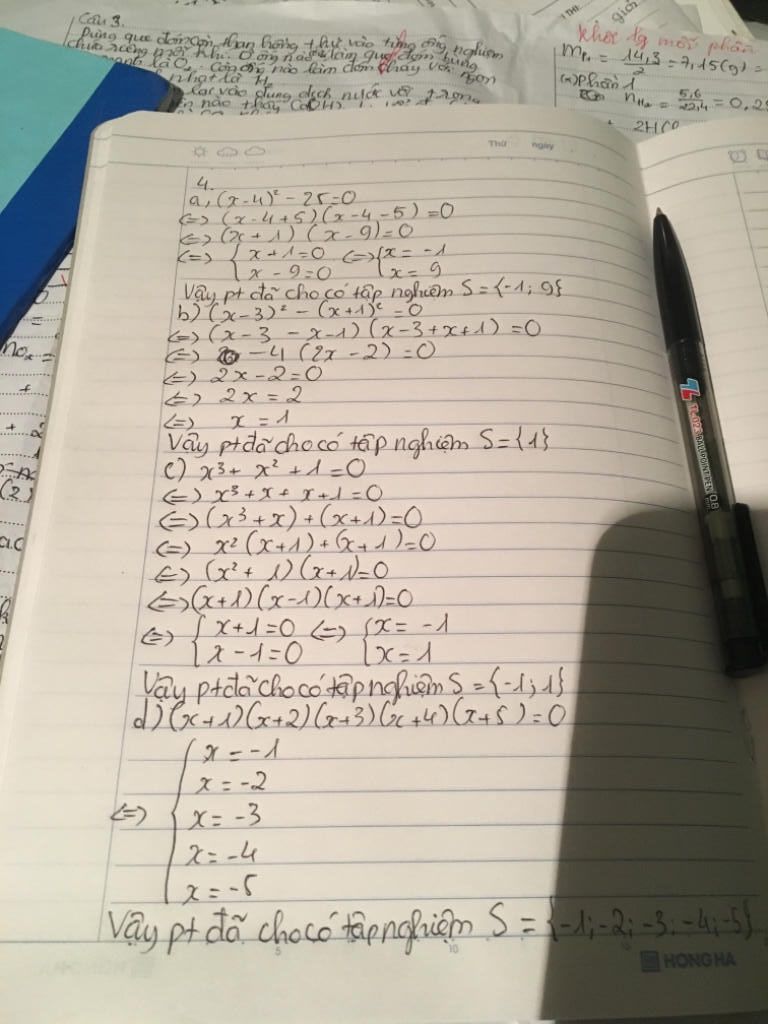 Câu 3.
Dùng que đóm còn than hồng thử vào từng ống nghiệm
khối lg mỗi phần
14,3
2
= 7,15(g) =
phần 1
5,6
22,4
= 0,25
Thứ ngày
4.
a, (x-4)² - 25=0
<=> (x-4+5)(x-4-5)=0
<=> (x+1)(x-9)=0
<=> { x+1=0 <=> { x= -1
x-9=0 x= 9
Vậy pt đã cho có tập nghiệm S={-1; 9}
b) (x-3)² - (x+1)² =0
<=> (x-3 -x-1)(x-3+x+1)=0
<=> -4 (2x-2)=0
<=> 2x-2=0
<=> 2x = 2
<=> x = 1
Vậy pt đã cho có tập nghiệm S={1}
c) x³+ x² +1=0
<=> x³+x+ x+1=0
<=> (x³+x)+(x+1)=0
<=> x²(x+1)+(x+1)=0
<=> (x²+ 1)(x+1)=0
<=> (x+1)(x-1)(x+1)=0
<=> { x+1=0 <=> { x= -1
x-1=0 x=1
Vậy pt đã cho có tập nghiệm S={-1;1}
d) (x+1)(x+2)(x+3)(x+4)(x+5)=0
x= -1
x= -2
<=> { x= -3
x= -4
x= -5
Vậy pt đã cho có tập nghiệm S={-1;-2;-3;-4;-5}
5 10 15
HONG HA
TL-023
BALLPOINT PEN 0.8